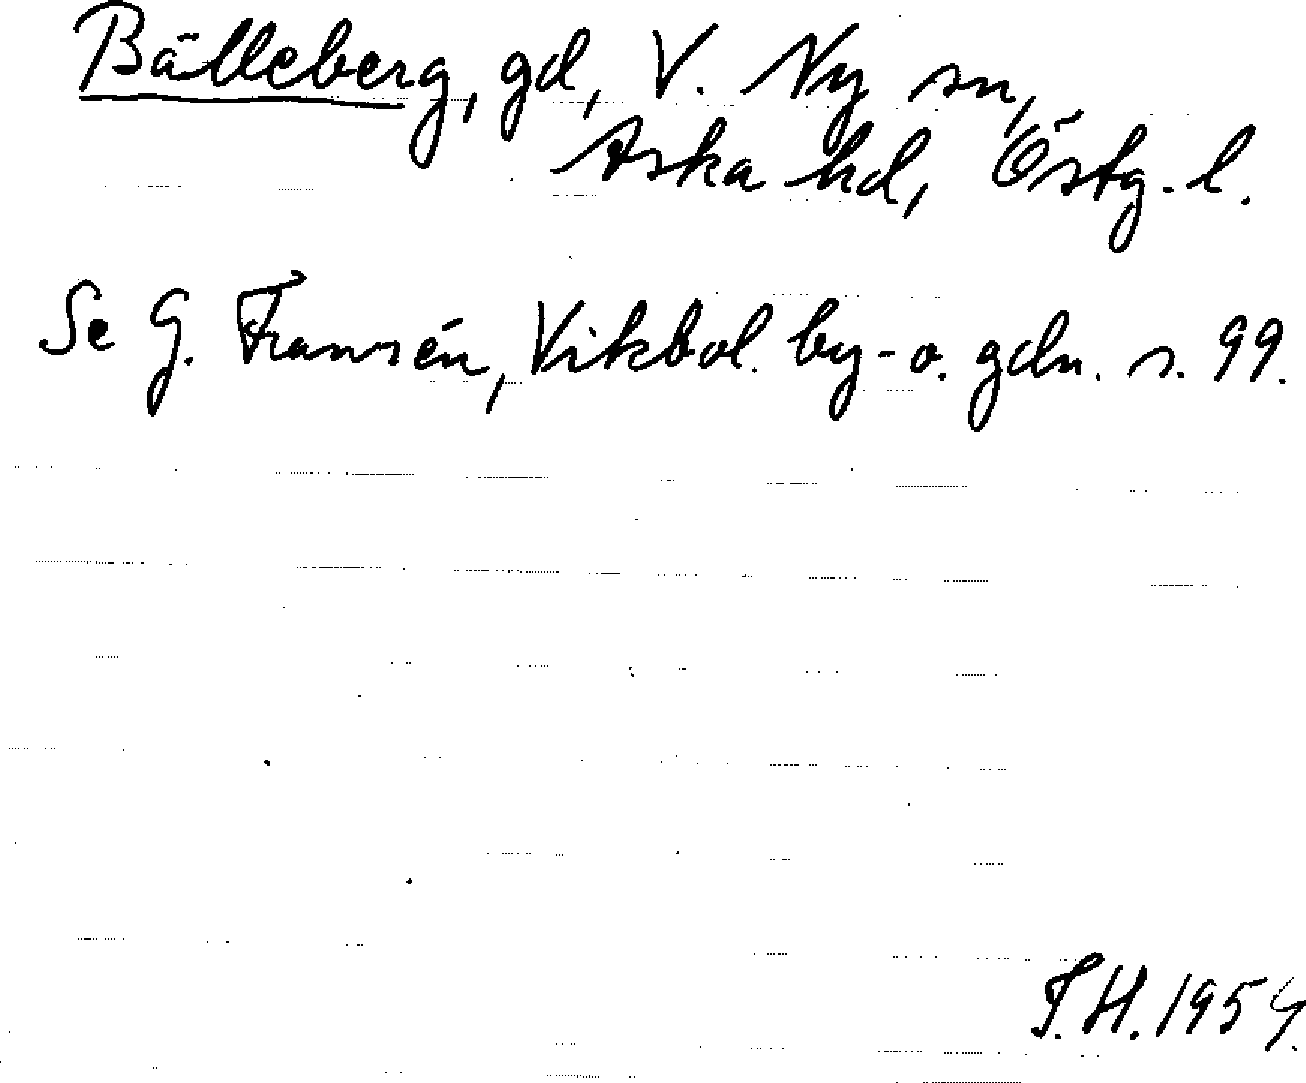 Bälleberg, gd, V. Ny sn,
Aska hd, Östg. l.
Se G. Franzén, Vikbol. by- o. gdn. s. 99.
T.H. 1954.